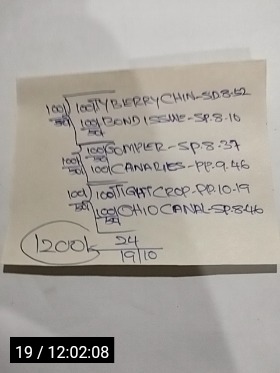 100/50 100/TYBERRY CHIN-SP.8.52
100/50 BOND ISSUE-SP.8.10
100/50 100/50 GOMPIER-SP.8.37
100/CANARIES-PP.9.46
100/50 100/TIGHT CROP-PP.10-19
100/50 OHIO CANAL-SP.8.46
1200K 24
19/10
19 / 12:02:08